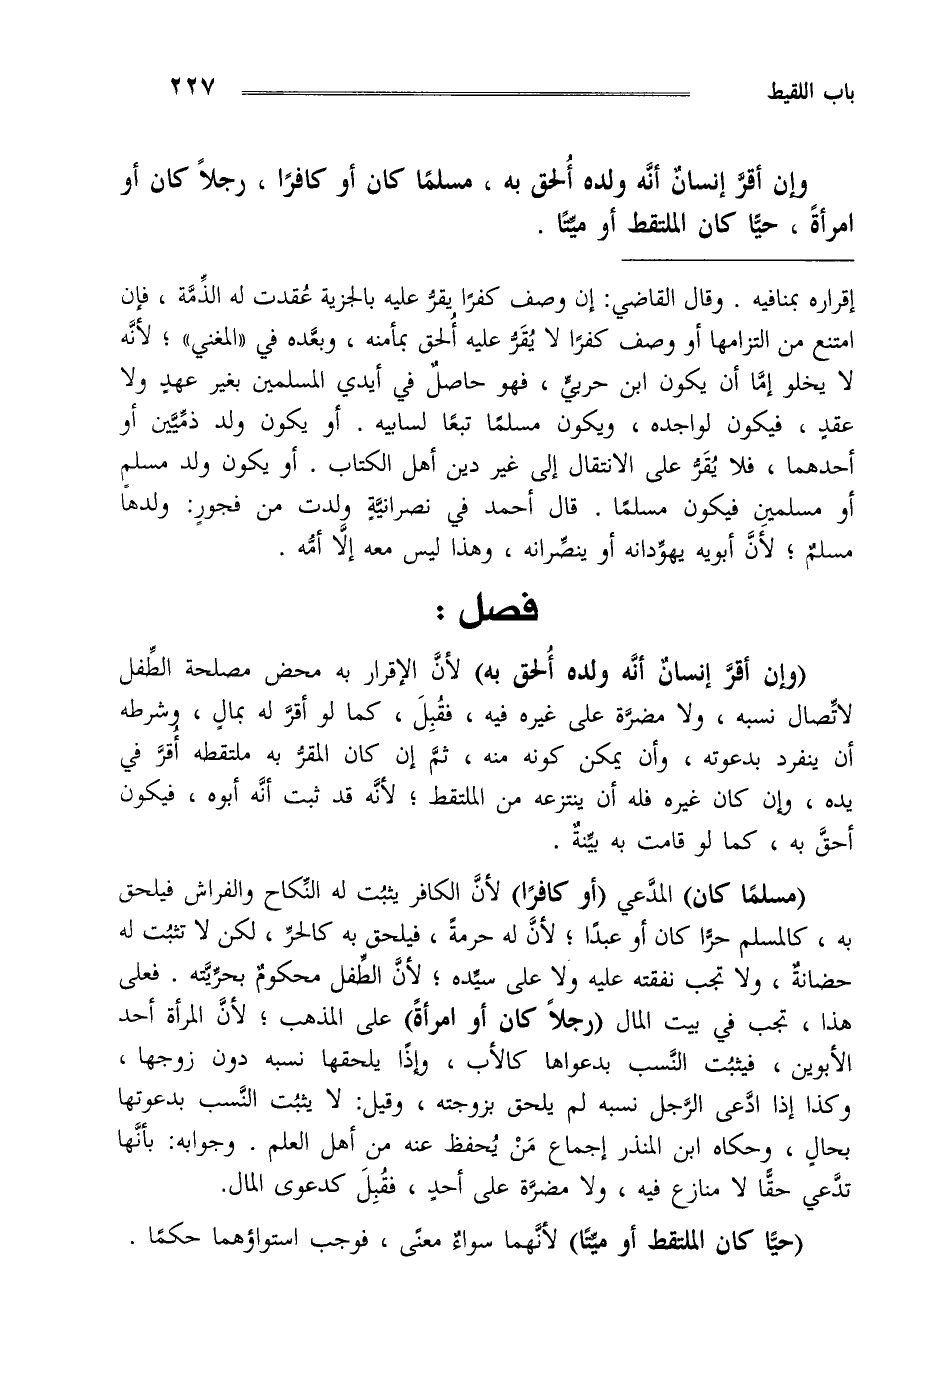 باب اللقيط ٢٢٧
وإن أقرَّ إنسانٌ أنَّه ولده أُلحق به ، مسلمًا كان أو كافرًا ، رجلاً كان أو
امرأةً ، حيًّا كان الملتقط أو ميِّتًا .
إقراره بمنافيه . وقال القاضي: إن وصف كفرًا يقرُّ عليه بالجزية عُقدت له الذِّمَّة ، فإن
امتنع من التزامها أو وصف كفرًا لا يُقَرُّ عليه أُلحق بمأمنه ، وبعَّده في «المغني» ؛ لأنَّه
لا يخلو إمَّا أن يكون ابن حربيٍّ ، فهو حاصلٌ في أيدي المسلمين بغير عهدٍ ولا
عقدٍ ، فيكون لواجده ، ويكون مسلمًا تبعًا لسابيه . أو يكون ولد ذمِّيَّين أو
أحدهما ، فلا يُقَرُّ على الانتقال إلى غير دين أهل الكتاب . أو يكون ولد مسلمٍ
أو مسلمينِ فيكون مسلمًا . قال أحمد في نصرانيَّةٍ ولدت من فجورٍ: ولدها
مسلمٌ ؛ لأنَّ أبويه يهوِّدانه أو ينصِّرانه ، وهذا ليس معه إلَّا أمُّه .
فصل :
(وإن أقرَّ إنسانٌ أنَّه ولده أُلحق به) لأنَّ الإقرار به محض مصلحة الطِّفل
لاتِّصال نسبه ، ولا مضرَّة على غيره فيه ، فقُبِلَ ، كما لو أقرَّ له بمالٍ ، وشرطه
أن ينفرد بدعوته ، وأن يمكن كونه منه ، ثمَّ إن كان المقرُّ به ملتقطه أُقرَّ في
يده ، وإن كان غيره فله أن ينتزعه من الملتقط ؛ لأنَّه قد ثبت أنَّه أبوه ، فيكون
أحقَّ به ، كما لو قامت به بيِّنةٌ .
(مسلمًا كان) المدَّعي (أو كافرًا) لأنَّ الكافر يثبُت له النِّكاح والفراش فيلحق
به ، كالمسلم حرًّا كان أو عبدًا ؛ لأنَّ له حرمةً ، فيلحق به كالحرِّ ، لكن لا تثبُت له
حضانةٌ ، ولا تجب نفقته عليه ولا على سيِّده ؛ لأنَّ الطِّفل محكومٌ بحرِّيَّته . فعلى
هذا ، تجب في بيت المال (رجلاً كان أو امرأةً) على المذهب ؛ لأنَّ المرأة أحد
الأبوين ، فيثبُت النَّسب بدعواها كالأب ، وإذًا يلحقها نسبه دون زوجها ،
وكذا إذا ادَّعى الرَّجل نسبه لم يلحق بزوجته ، وقيل: لا يثبُت النَّسب بدعوتها
بحالٍ ، وحكاه ابن المنذر إجماع مَنْ يُحفظ عنه من أهل العلم . وجوابه: بأنَّها
تدَّعي حقًّا لا منازع فيه ، ولا مضرَّة على أحدٍ ، فقُبِلَ كدعوى المال.
(حيًّا كان الملتقط أو ميِّتًا) لأنَّهما سواءٌ معنًى ، فوجب استواؤهما حكمًا .